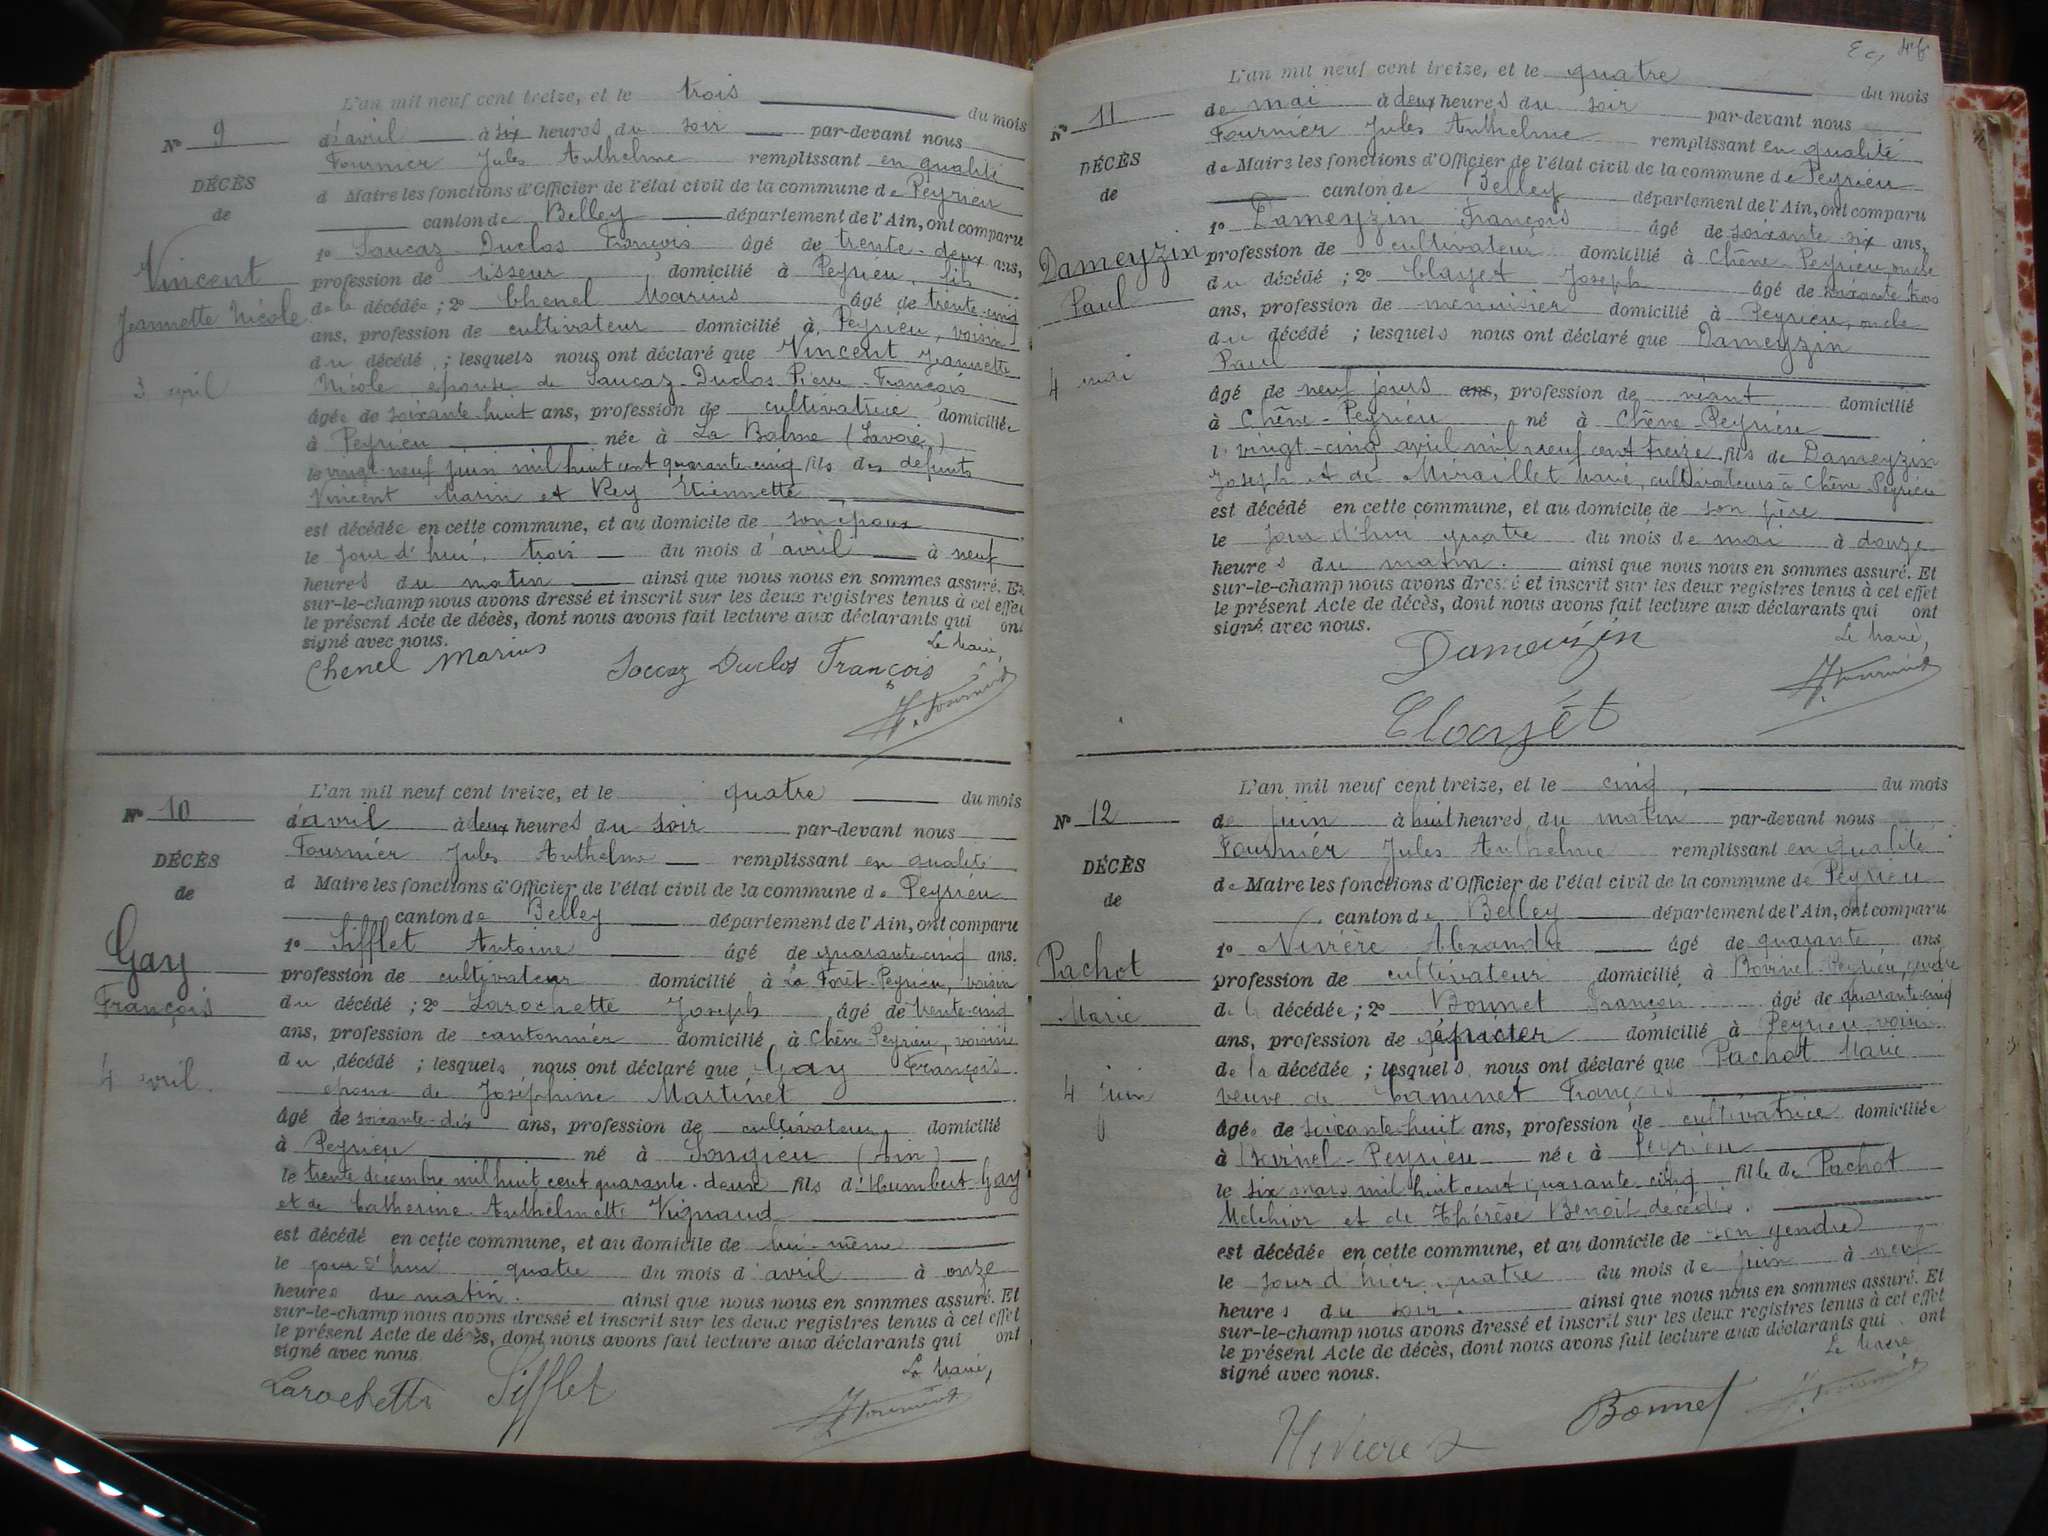 L'an mil neuf cent treize, et le trois du mois
Nº 9
d'avril à six heures du soir par-devant nous
Fournier Jules Anthelme remplissant en qualité
DÉCÈS
de
d Maire les fonctions d'Officier de l'état civil de la commune de Peyrieu
canton de Belley département de l'Ain, ont comparu
1º Saucaz-Duclos François âgé de trente-deux ans,
Vincent
Jeannette Nicole
3 avril
profession de tisseur domicilié à Peyrieu, fils
de la décédée ; 2º Chenel Marius âgé de trente-cinq
ans, profession de cultivateur domicilié à Peyrieu, voisin
du décédé ; lesquels nous ont déclaré que Vincent Jeannette
Nicole épouse de Saucaz-Duclos Pierre-François
âgée de soixante-huit ans, profession de cultivatrice domiciliée
à Peyrieu née à La Balme (Savoie)
le vingt-neuf juin mil huit cent quarante-cinq fils des défunts
Vincent Marin et Rey Etiennette
est décédée en cette commune, et au domicile de son époux
le jour d'hui, trois du mois d'avril à neuf
heures du matin ainsi que nous nous en sommes assuré. Et
sur-le-champ nous avons dressé et inscrit sur les deux registres tenus à cet effet
le présent Acte de décès, dont nous avons fait lecture aux déclarants qui ont
signé avec nous.
Le Maire,
Chenel Marius Soccaz Duclos François
J. Fournier
L'an mil neuf cent treize, et le quatre du mois
Nº 10
d'avril à deux heures du soir par-devant nous
Fournier Jules Anthelme remplissant en qualité
DÉCÈS
de
d Maire les fonctions d'Officier de l'état civil de la commune de Peyrieu
canton de Belley département de l'Ain, ont comparu
1º Sifflet Antoine âgé de quarante-cinq ans.
Gay
François
4 avril.
profession de cultivateur domicilié à La Forêt-Peyrieu, voisin
du décédé ; 2º Larochette Joseph âgé de trente-cinq
ans, profession de cantonnier domicilié à Chêne-Peyrieu, voisin
du décédé ; lesquels nous ont déclaré que Gay François
époux de Joséphine Martinet
âgé de soixante-dix ans, profession de cultivateur domicilié
à Peyrieu né à Songieu (Ain)
le trente décembre mil huit cent quarante-deux fils d'Humbert Gay
et de Catherine-Anthelmette Vignaud
est décédé en cette commune, et au domicile de lui-même
le jour d'hui quatre du mois d'avril à onze
heures du matin. ainsi que nous nous en sommes assuré. Et
sur-le-champ nous avons dressé et inscrit sur les deux registres tenus à cet effet
le présent Acte de décès, dont nous avons fait lecture aux déclarants qui ont
signé avec nous
Le Maire,
Larochette Sifflet
J. Fournier
L'an mil neuf cent treize, et le quatre du mois
Nº 11
de mai à deux heures du soir par-devant nous
Fournier Jules Anthelme remplissant en qualité
DÉCÈS
de
de Maire les fonctions d'Officier de l'état civil de la commune de Peyrieu
canton de Belley département de l'Ain, ont comparu
1º Dameyzin François âgé de soixante six ans,
Dameyzin
Paul
4 mai
profession de cultivateur domicilié à Chêne-Peyrieu, oncle
du décédé ; 2º Clayet Joseph âgé de soixante trois
ans, profession de menuisier domicilié à Peyrieu, oncle
du décédé ; lesquels nous ont déclaré que Dameyzin
Paul
âgé de neuf jours ans, profession de néant domicilié
à Chêne-Peyrieu né à Chêne-Peyrieu
l vingt-cinq avril mil neuf cent treize fils de Dameyzin
Joseph et de Miraillet Marie, cultivateurs à Chêne-Peyrieu
est décédé en cette commune, et au domicile de son père
le jour d'hui quatre du mois de mai à douze
heures du matin. ainsi que nous nous en sommes assuré. Et
sur-le-champ nous avons dressé et inscrit sur les deux registres tenus à cet effet
le présent Acte de décès, dont nous avons fait lecture aux déclarants qui ont
signé avec nous.
Le Maire,
Dameyzin
J. Fournier
L'an mil neuf cent treize, et le cinq, du mois
Nº 12
de juin à huit heures du matin par-devant nous
Fournier Jules Anthelme remplissant en qualité
DÉCÈS
de
de Maire les fonctions d'Officier de l'état civil de la commune de Peyrieu
canton de Belley département de l'Ain, ont comparu
1º Nivière Alexandre âgé de quarante ans
Pachot
Marie
4 juin
profession de cultivateur domicilié à Peyrieu, gendre
de la décédée ; 2º Bonnet François âgé de quarante-cinq
ans, profession de épicier domicilié à Peyrieu, voisin
de la décédée ; lesquels nous ont déclaré que Pachot Marie
veuve de Caminet François
âgée de soixante-huit ans, profession de cultivatrice domiciliée
à Peyrieu née à Peyrieu
le six mars mil huit cent quarante-cinq fille de Pachot
Melchior et de Thérèse Benoit, décédés.
est décédée en cette commune, et au domicile de son gendre
le jour d'hier quatre du mois de juin à neuf
heures du soir. ainsi que nous nous en sommes assuré. Et
sur-le-champ nous avons dressé et inscrit sur les deux registres tenus à cet effet
le présent Acte de décès, dont nous avons fait lecture aux déclarants qui ont
signé avec nous.
Le Maire
Bonnet
J. Fournier